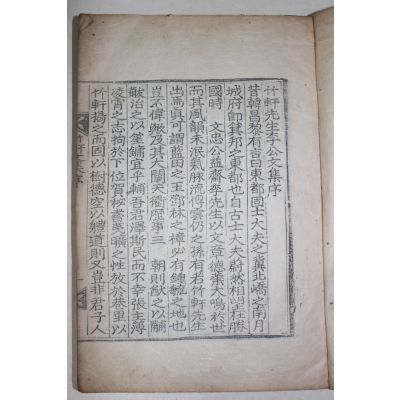 竹軒先生李公文集序
昔韓昌黎有言曰東都固士大夫之冀北嶠之南月
城府卽箕邦之東都也自古士大夫蔚然相望在勝
國時　文忠公益齋李先生以文章德業大鳴於世
而其風韻未泯氣脉流傳雲仍之孫有若竹軒先生
出焉眞可謂藍田之玉鄧林之樟必有鍾毓之地也
豈不偉歟及其大闡天衢歷事三　朝則猷之以黼
黻治之以笙鏞宜乎輔吾君澤斯民而不幸張主簿
凌霄之志拘於下位賀秘書夷曠之性放於巷里以
竹軒揭之而固以樹德空以軆道則又豈非君子人